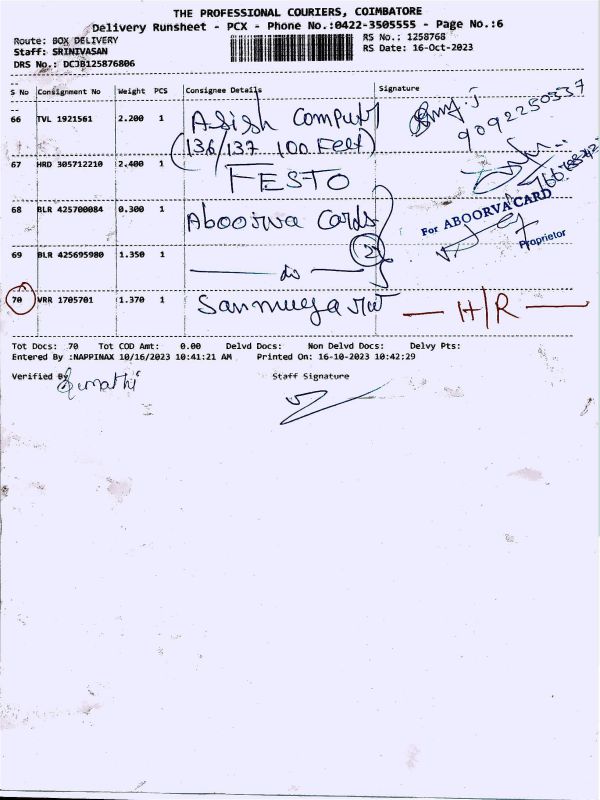 THE PROFESSIONAL COURIERS, COIMBATORE
Delivery Runsheet - PCX - Phone No.:0422-3505555 - Page No.:6
Route: BOX DELIVERY
RS No.: 1258768
Staff: SRINIVASAN
RS Date: 16-Oct-2023
DRS No.: DCJB125876806
S No Consignment No Weight PCS Consignee Details Signature
66 TVL 1921561 2.200 1 Asish Computer
9092250337
(136/137 100 Feet)
67 HRD 305712210 2.400 1 FESTO
68 BLR 425700084 0.300 1 Aboorva Cards
For ABOORVA CARD
Proprietor
2
69 BLR 425695980 1.350 1 do
70 VRR 1705701 1.370 1 H/R
Tot Docs: 70 Tot COD Amt: 0.00 Delvd Docs: Non Delvd Docs: Delvy Pts:
Entered By :NAPPINAX 10/16/2023 10:41:21 AM Printed On: 16-10-2023 10:42:29
Verified By Staff Signature